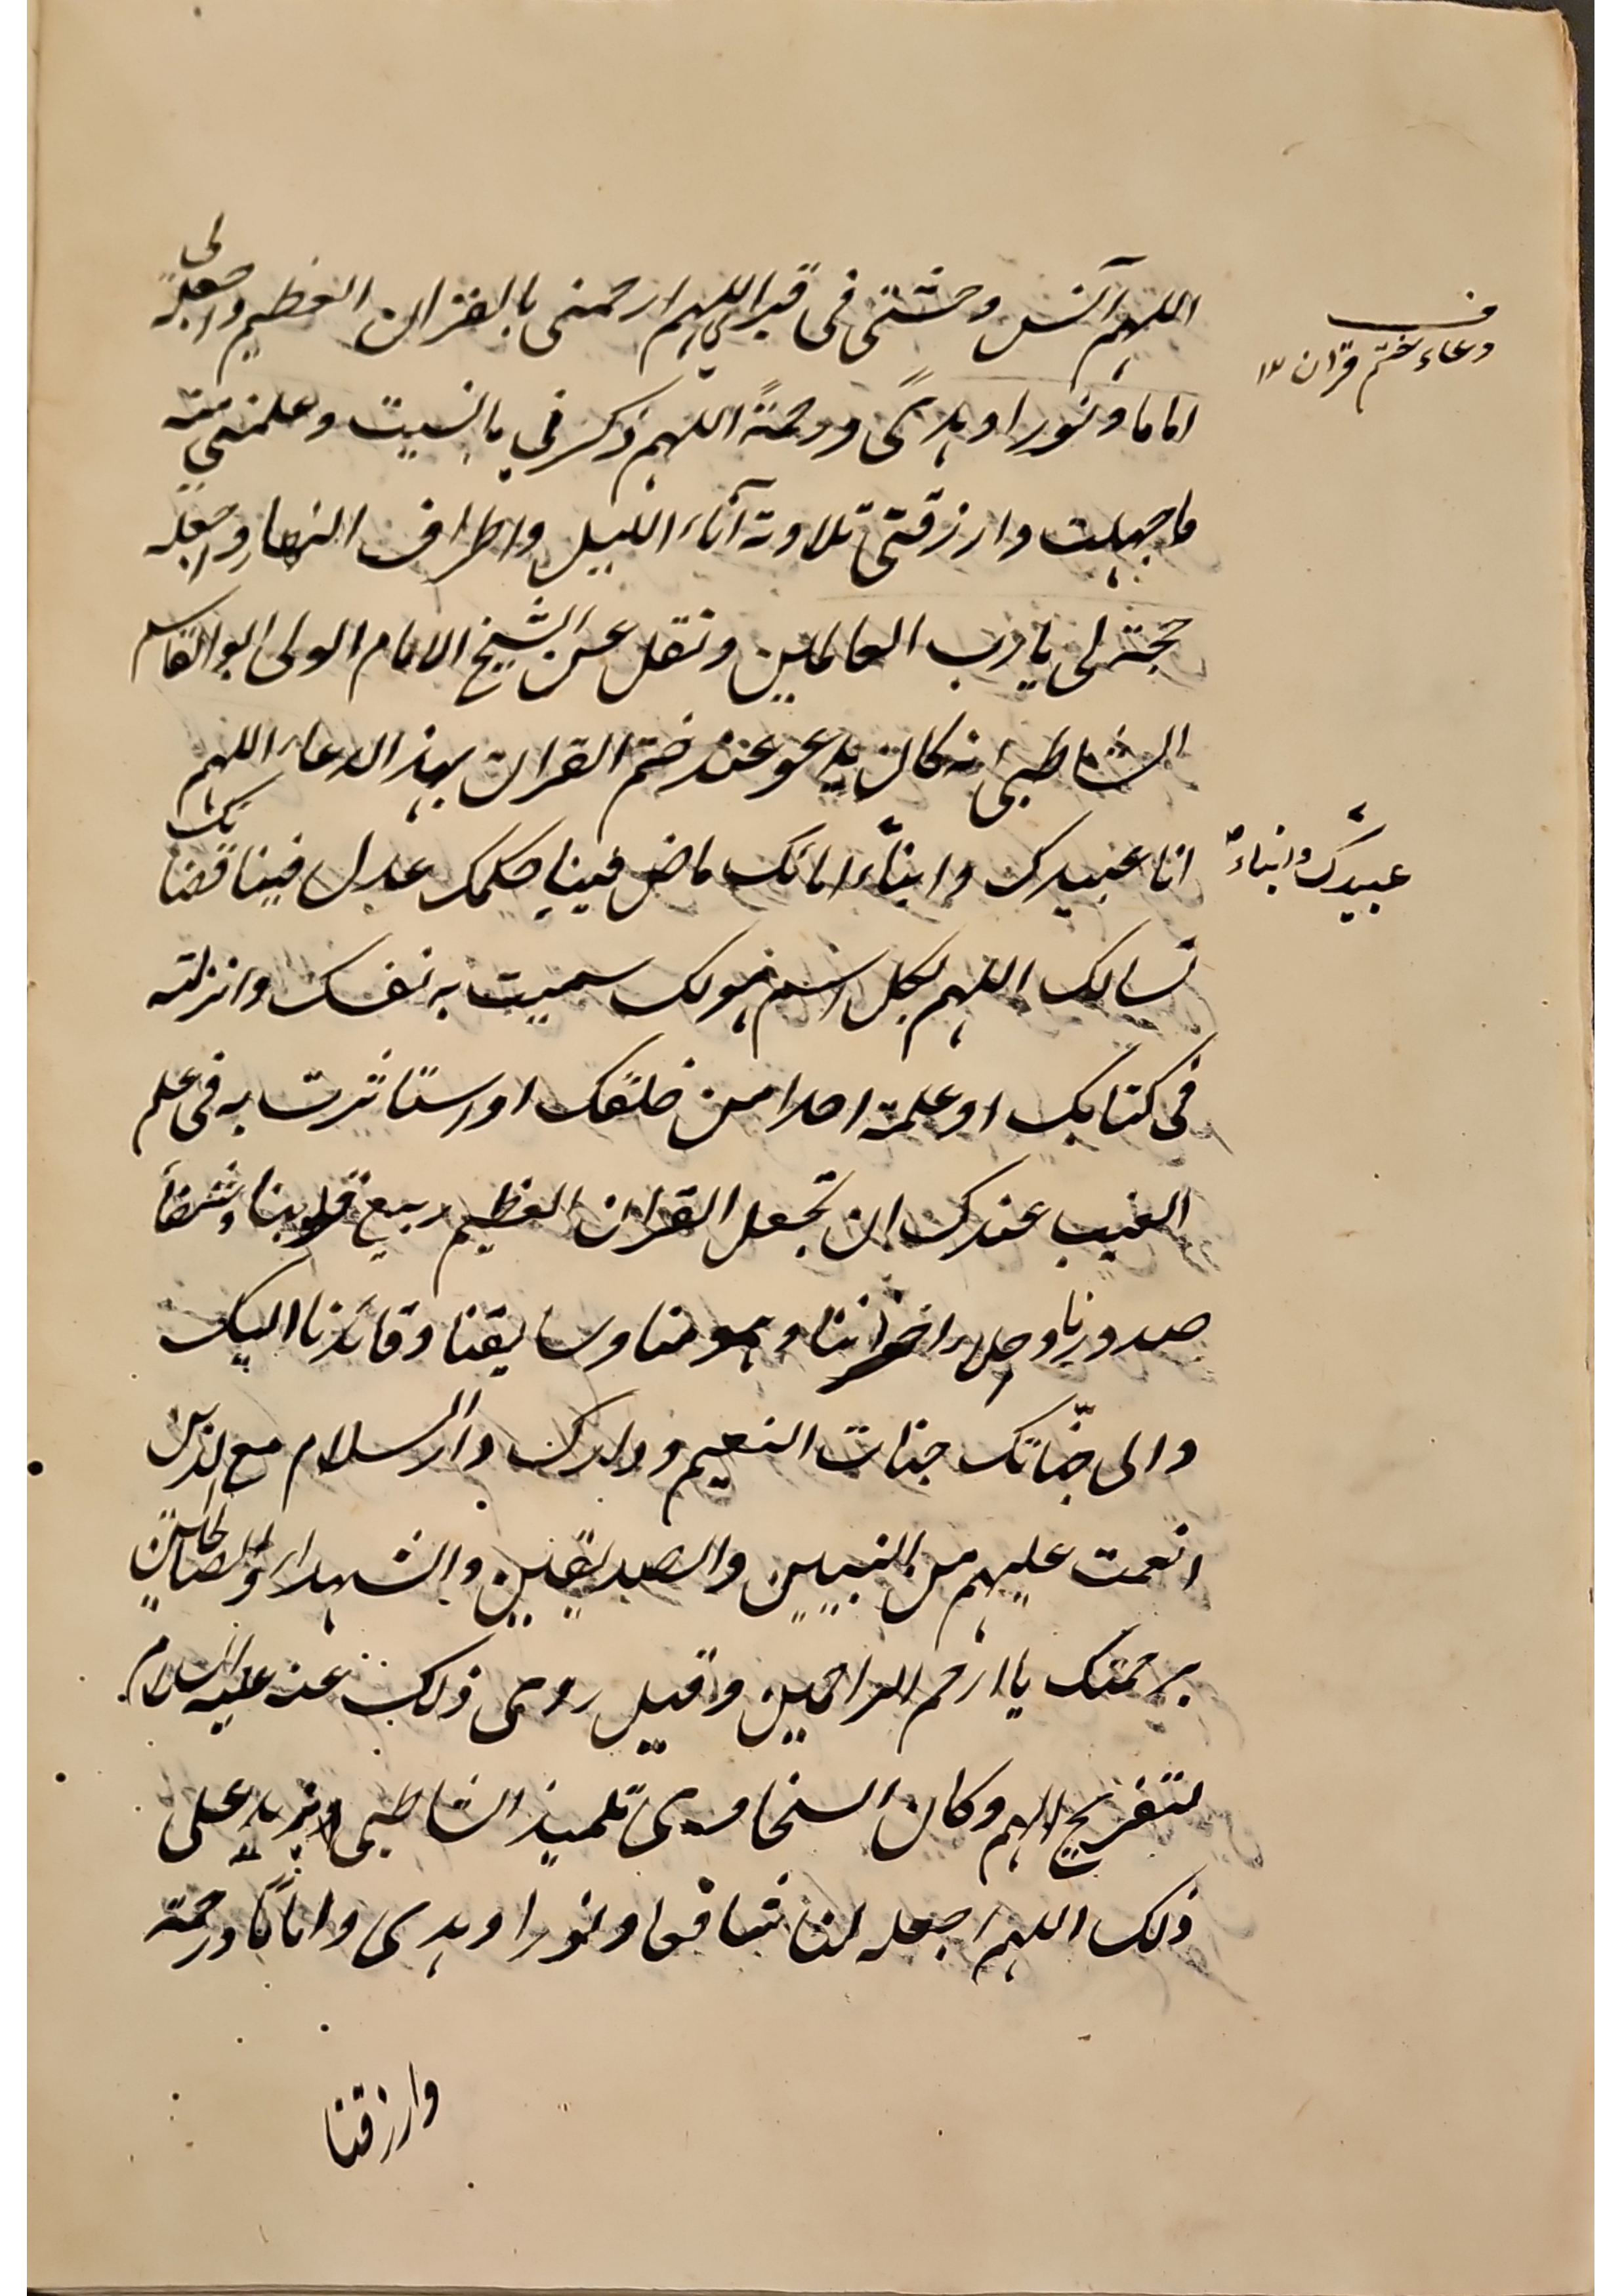 اللهم آنس وحشتي في قبري اللهم ارحمني بالقران العظيم واجعله لي
ف
دعاء ختم قران ١٢
اماما ونورا وهدًى ورحمةً اللهم ذكرني ما نسيت وعلمني منه
ما جهلت وارزقني تلاوته آناء الليل واطراف النهار واجعله
حجة لي يا رب العالمين ونقل عن الشيخ الامام الولي ابو القاسم
الشاطبي انه كان يدعو عند ختم القران بهذا الدعاء اللهم
انا عبيدك وابناء امائك ماض فينا حكمك عدل فينا قضائك
عبيدك وابناء
نسالك اللهم بكل اسم هو لك سميت به نفسك وانزلته
في كتابك او علمته احدا من خلقك او استاثرت به في علم
الغيب عندك ان تجعل القران العظيم ربيع قلوبنا وشفاء
صدورنا وجلاء احزاننا وهمومنا وسايقنا وقائدنا اليك
والى جناتك جنات النعيم ودارك دار السلام مع الذين
انعمت عليهم من النبيين والصديقين والشهداء والصالحين
برحمتك يا ارحم الراحمين وقيل روى ذلك عنه عليه السلام
لتفريج الهم وكان السخاوى تلميذ الشاطبي يزيد على
ذلك اللهم اجعله لنا شفاء ونورا وهدى واماما ورحمة
وارزقنا